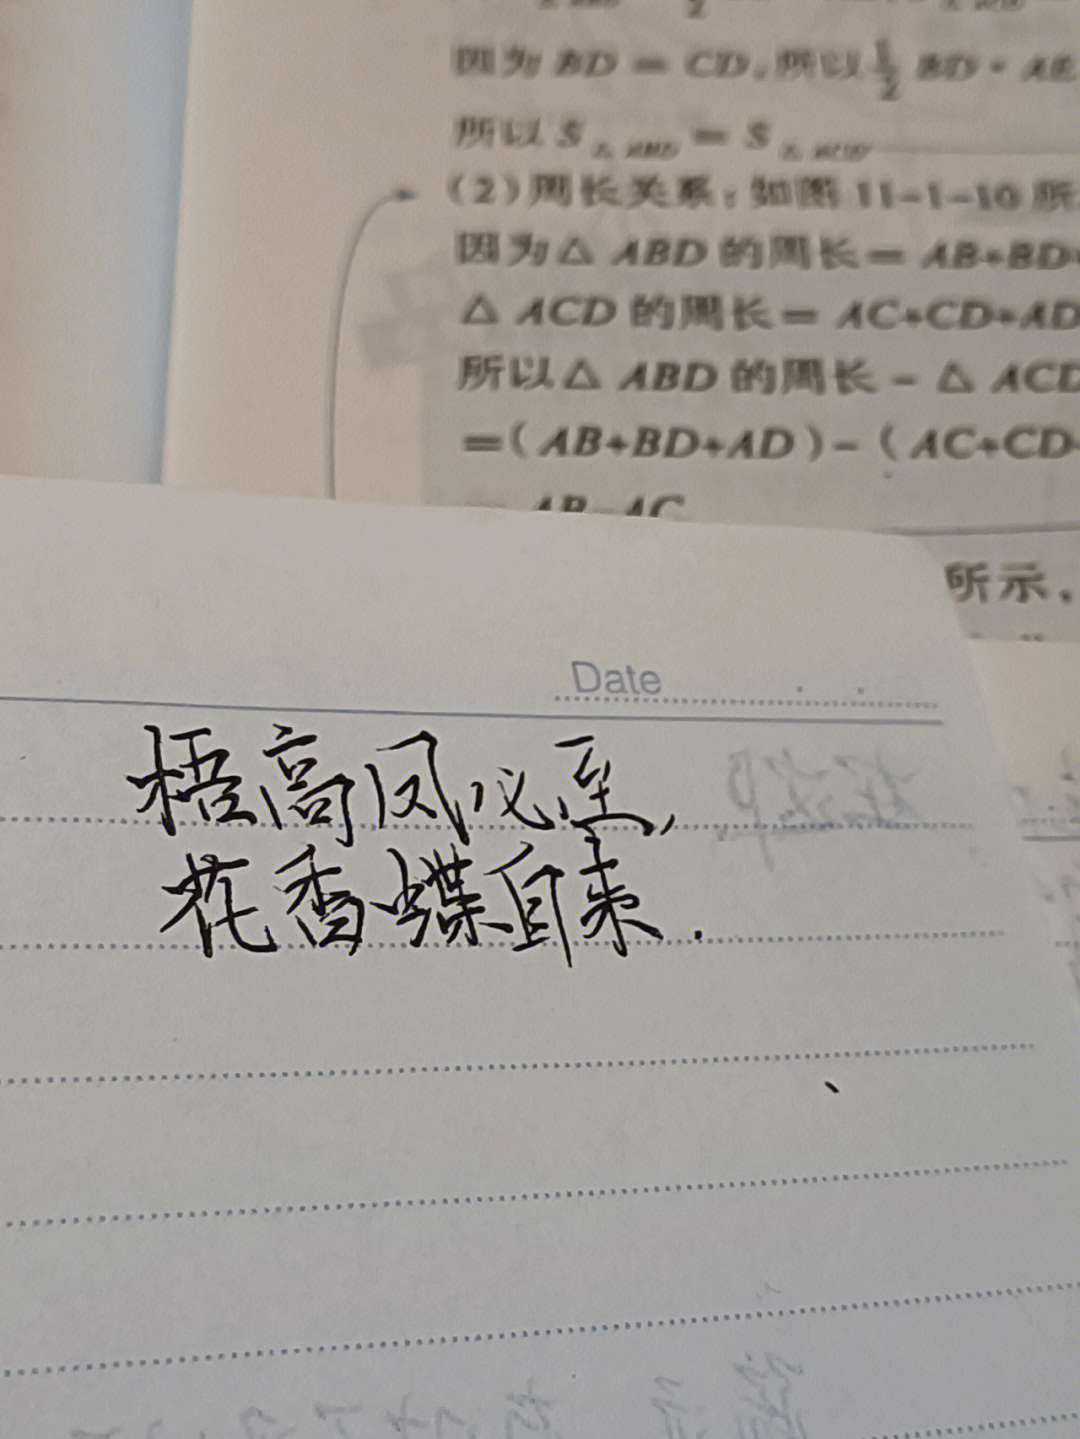 因为 BD = CD,所以 1/2 BD · AE
所以 S△ABD = S△ACD
(2)周长关系:如图 11-1-10 所
因为△ ABD 的周长= AB+BD+
△ ACD 的周长= AC+CD+AD
所以△ ABD 的周长 - △ ACD
=( AB+BD+AD )-( AC+CD+
= AB-AC
所示,
Date
梧高凤必至,
花香蝶自来.